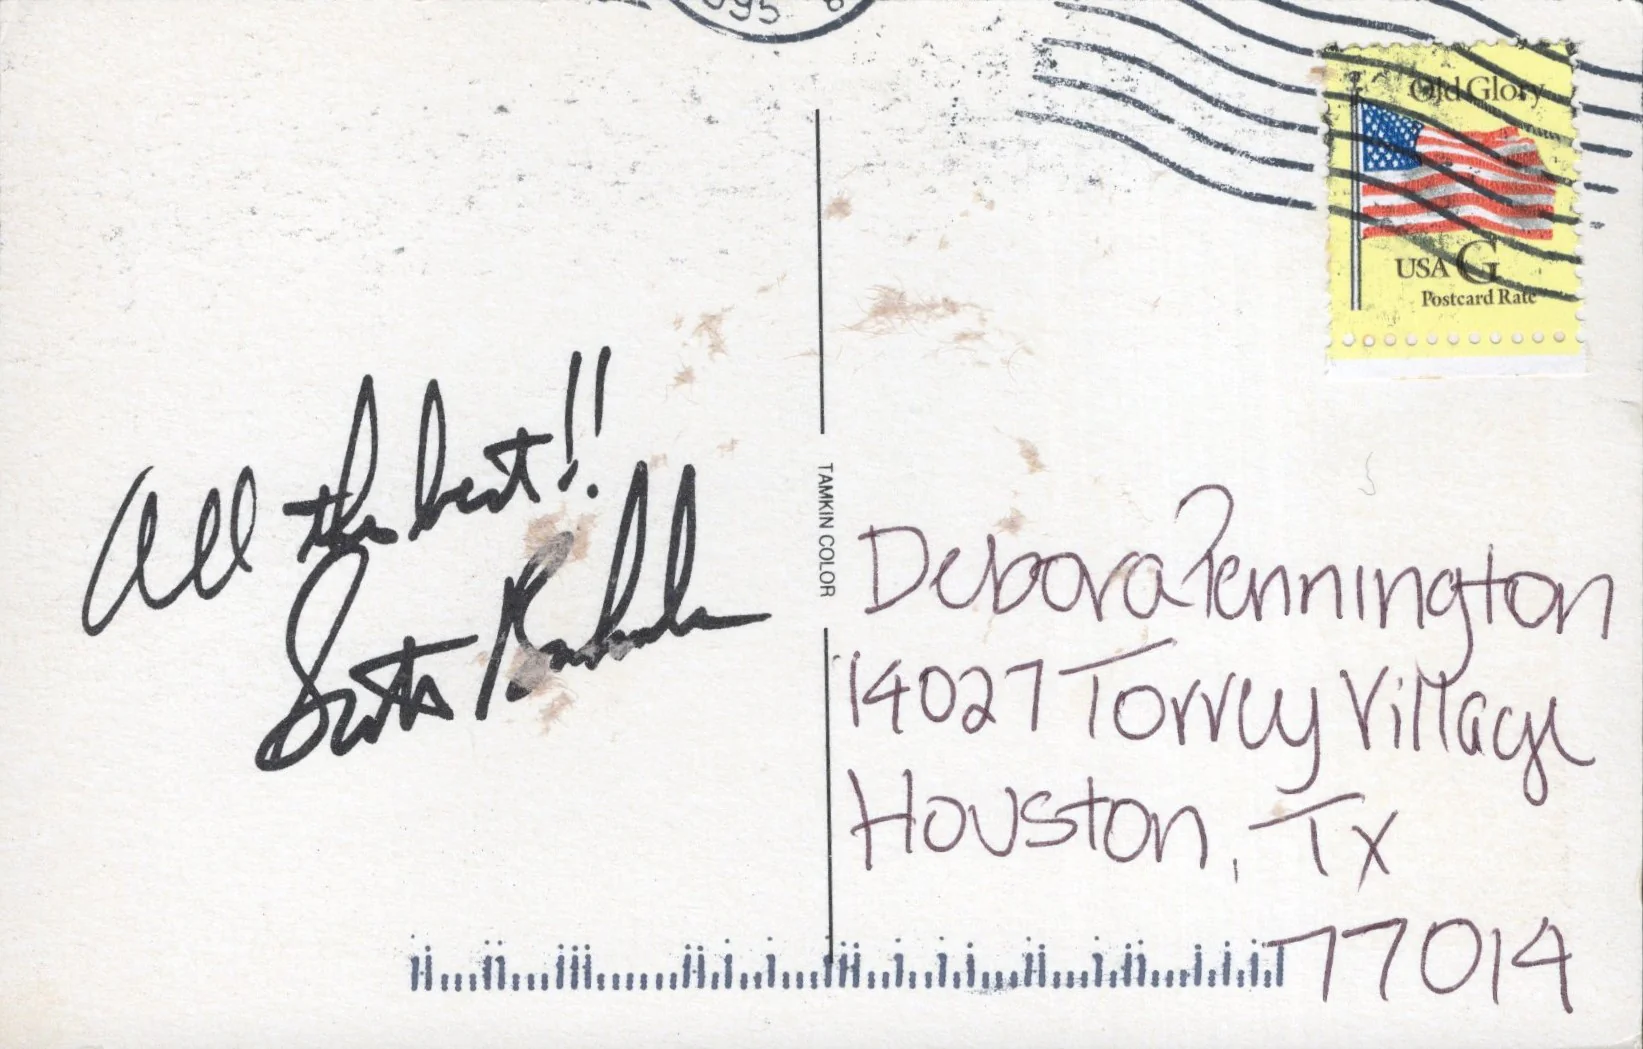 Old Glory
USA G
Postcard Rate
All the best!!
Scott
TAMKIN COLOR
Debora Pennington
14027 Torrey Village
Houston, Tx
77014